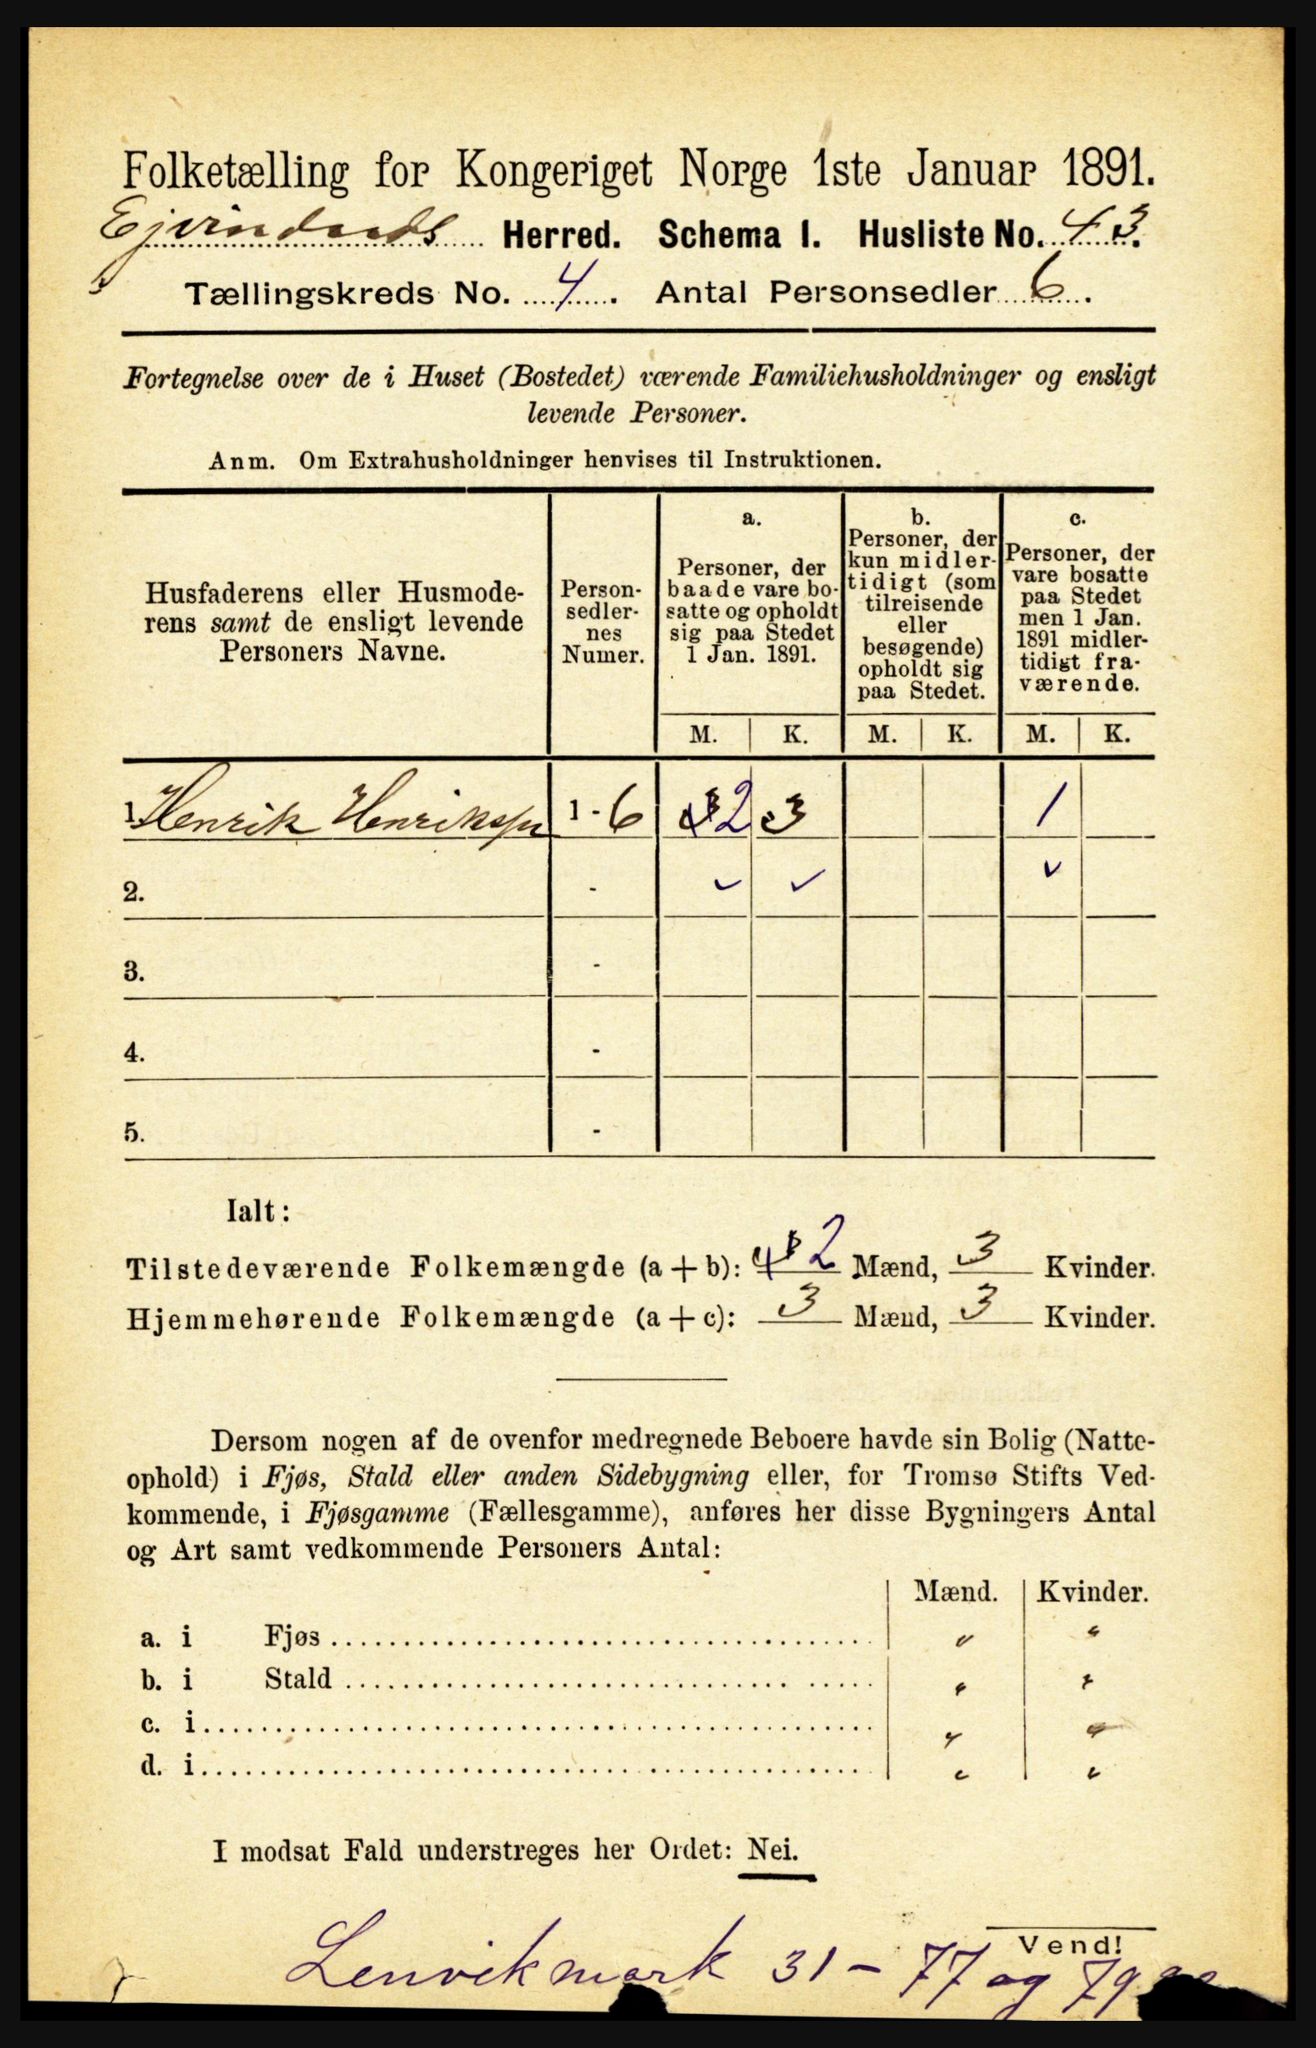 Folketælling for Kongeriget Norge 1ste Januar 1891.
Ejvindvik Herred. Schema I. Husliste No. 43.
Tællingskreds No. 4. Antal Personsedler 6.
Fortegnelse over de i Huset (Bostedet) værende Familiehusholdninger og ensligt
levende Personer.
Anm. Om Extrahusholdninger henvises til Instruktionen.
Husfaderens eller Husmode-
rens samt de ensligt levende
Personers Navne.
Person-
sedler-
nes
Numer.
a.
Personer, der
baade vare bo-
satte og opholdt
sig paa Stedet
1 Jan. 1891.
b.
Personer, der
kun midler-
tidigt (som
tilreisende
eller
besøgende)
opholdt sig
paa Stedet.
c.
Personer, der
vare bosatte
paa Stedet
men 1 Jan.
1891 midler-
tidigt fra-
værende.
M. K. M. K. M. K.
1. Henrik Henriksen 1 - 6 2 3 1
2. - ✓ ✓ ✓
3. -
4. -
5. -
Ialt:
Tilstedeværende Folkemængde (a + b): 2 Mænd, 3 Kvinder.
Hjemmehørende Folkemængde (a + c): 3 Mænd, 3 Kvinder.
Dersom nogen af de ovenfor medregnede Beboere havde sin Bolig (Natte-
ophold) i Fjøs, Stald eller anden Sidebygning eller, for Tromsø Stifts Ved-
kommende, i Fjøsgamme (Fællesgamme), anføres her disse Bygningers Antal
og Art samt vedkommende Personers Antal:
Mænd. Kvinder.
a. i Fjøs " "
b. i Stald " "
c. i " "
d. i " "
I modsat Fald understreges her Ordet: Nei.
Vend!
Lenvikmark 31 - 77 og 79